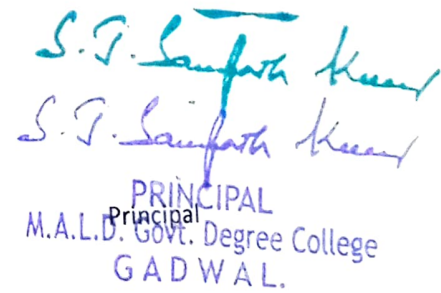 S. J. Sampath Kumar
S. J. Sampath Kumar
PRINCIPAL
Principal
M.A.L.D. Govt. Degree College
GADWAL.